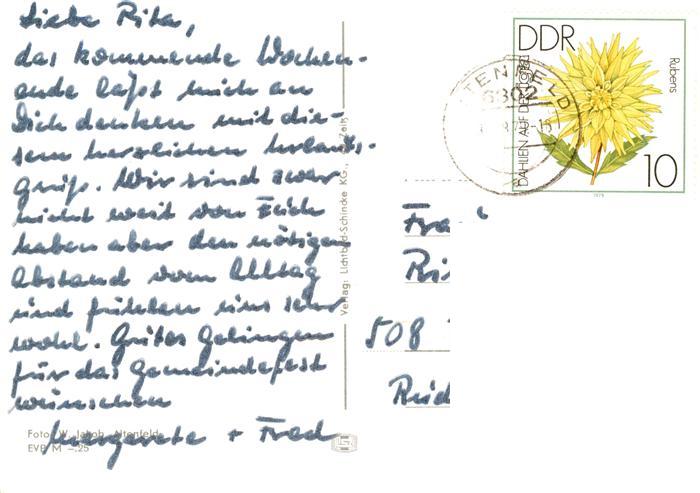 Liebe Rita,
das kommende Wochen-
ende läßt mich an
Dich denken mit die-
sem herzlichen Urlaubs-
gruß. Wir sind zwar
nicht weit von Euch
haben aber den nötigen
Abstand vom Alltag
und fühlen uns sehr
wohl. Gutes Gelingen
für das Gemeindefest
wünschen
Margarete + Fred
Foto: W. Jakob, Altenfeld
EVP M -.25
Verlag: Lichtbild-Schincke KG., Zeitz
DDR
DAHLEN AUF DER
Rubens
10
1979
TENFELD
6302
Fra
508